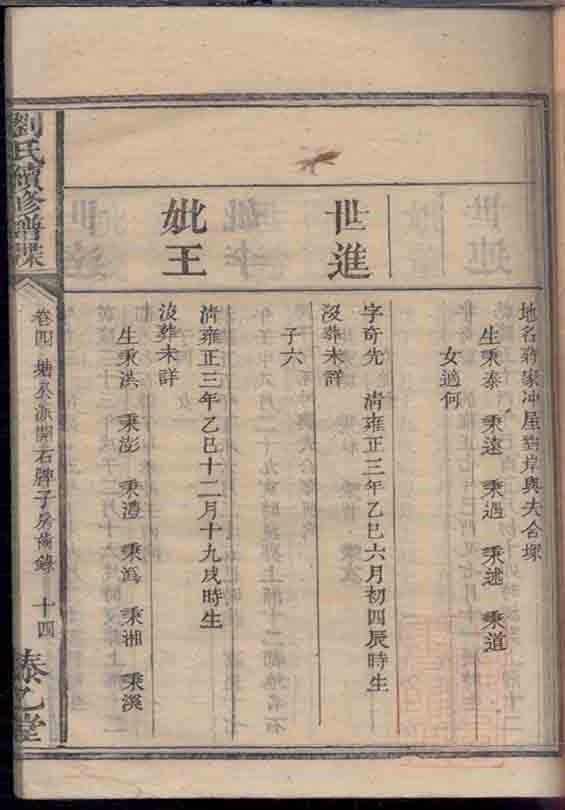 地名蔣家冲屋對岸與夫合塚
生秉泰 秉遠 秉過 秉述 秉道
女適何
世進
字奇先 清雍正三年乙巳六月初四辰時生
沒葬未詳
子六
妣王
清雍正三年乙巳十二月十九戌時生
沒葬未詳
生秉洪 秉澎 秉澧 秉為 秉湘 秉溪
劉氏續修譜牒
卷四 派開石牌子房齒錄 十四
泰乙堂